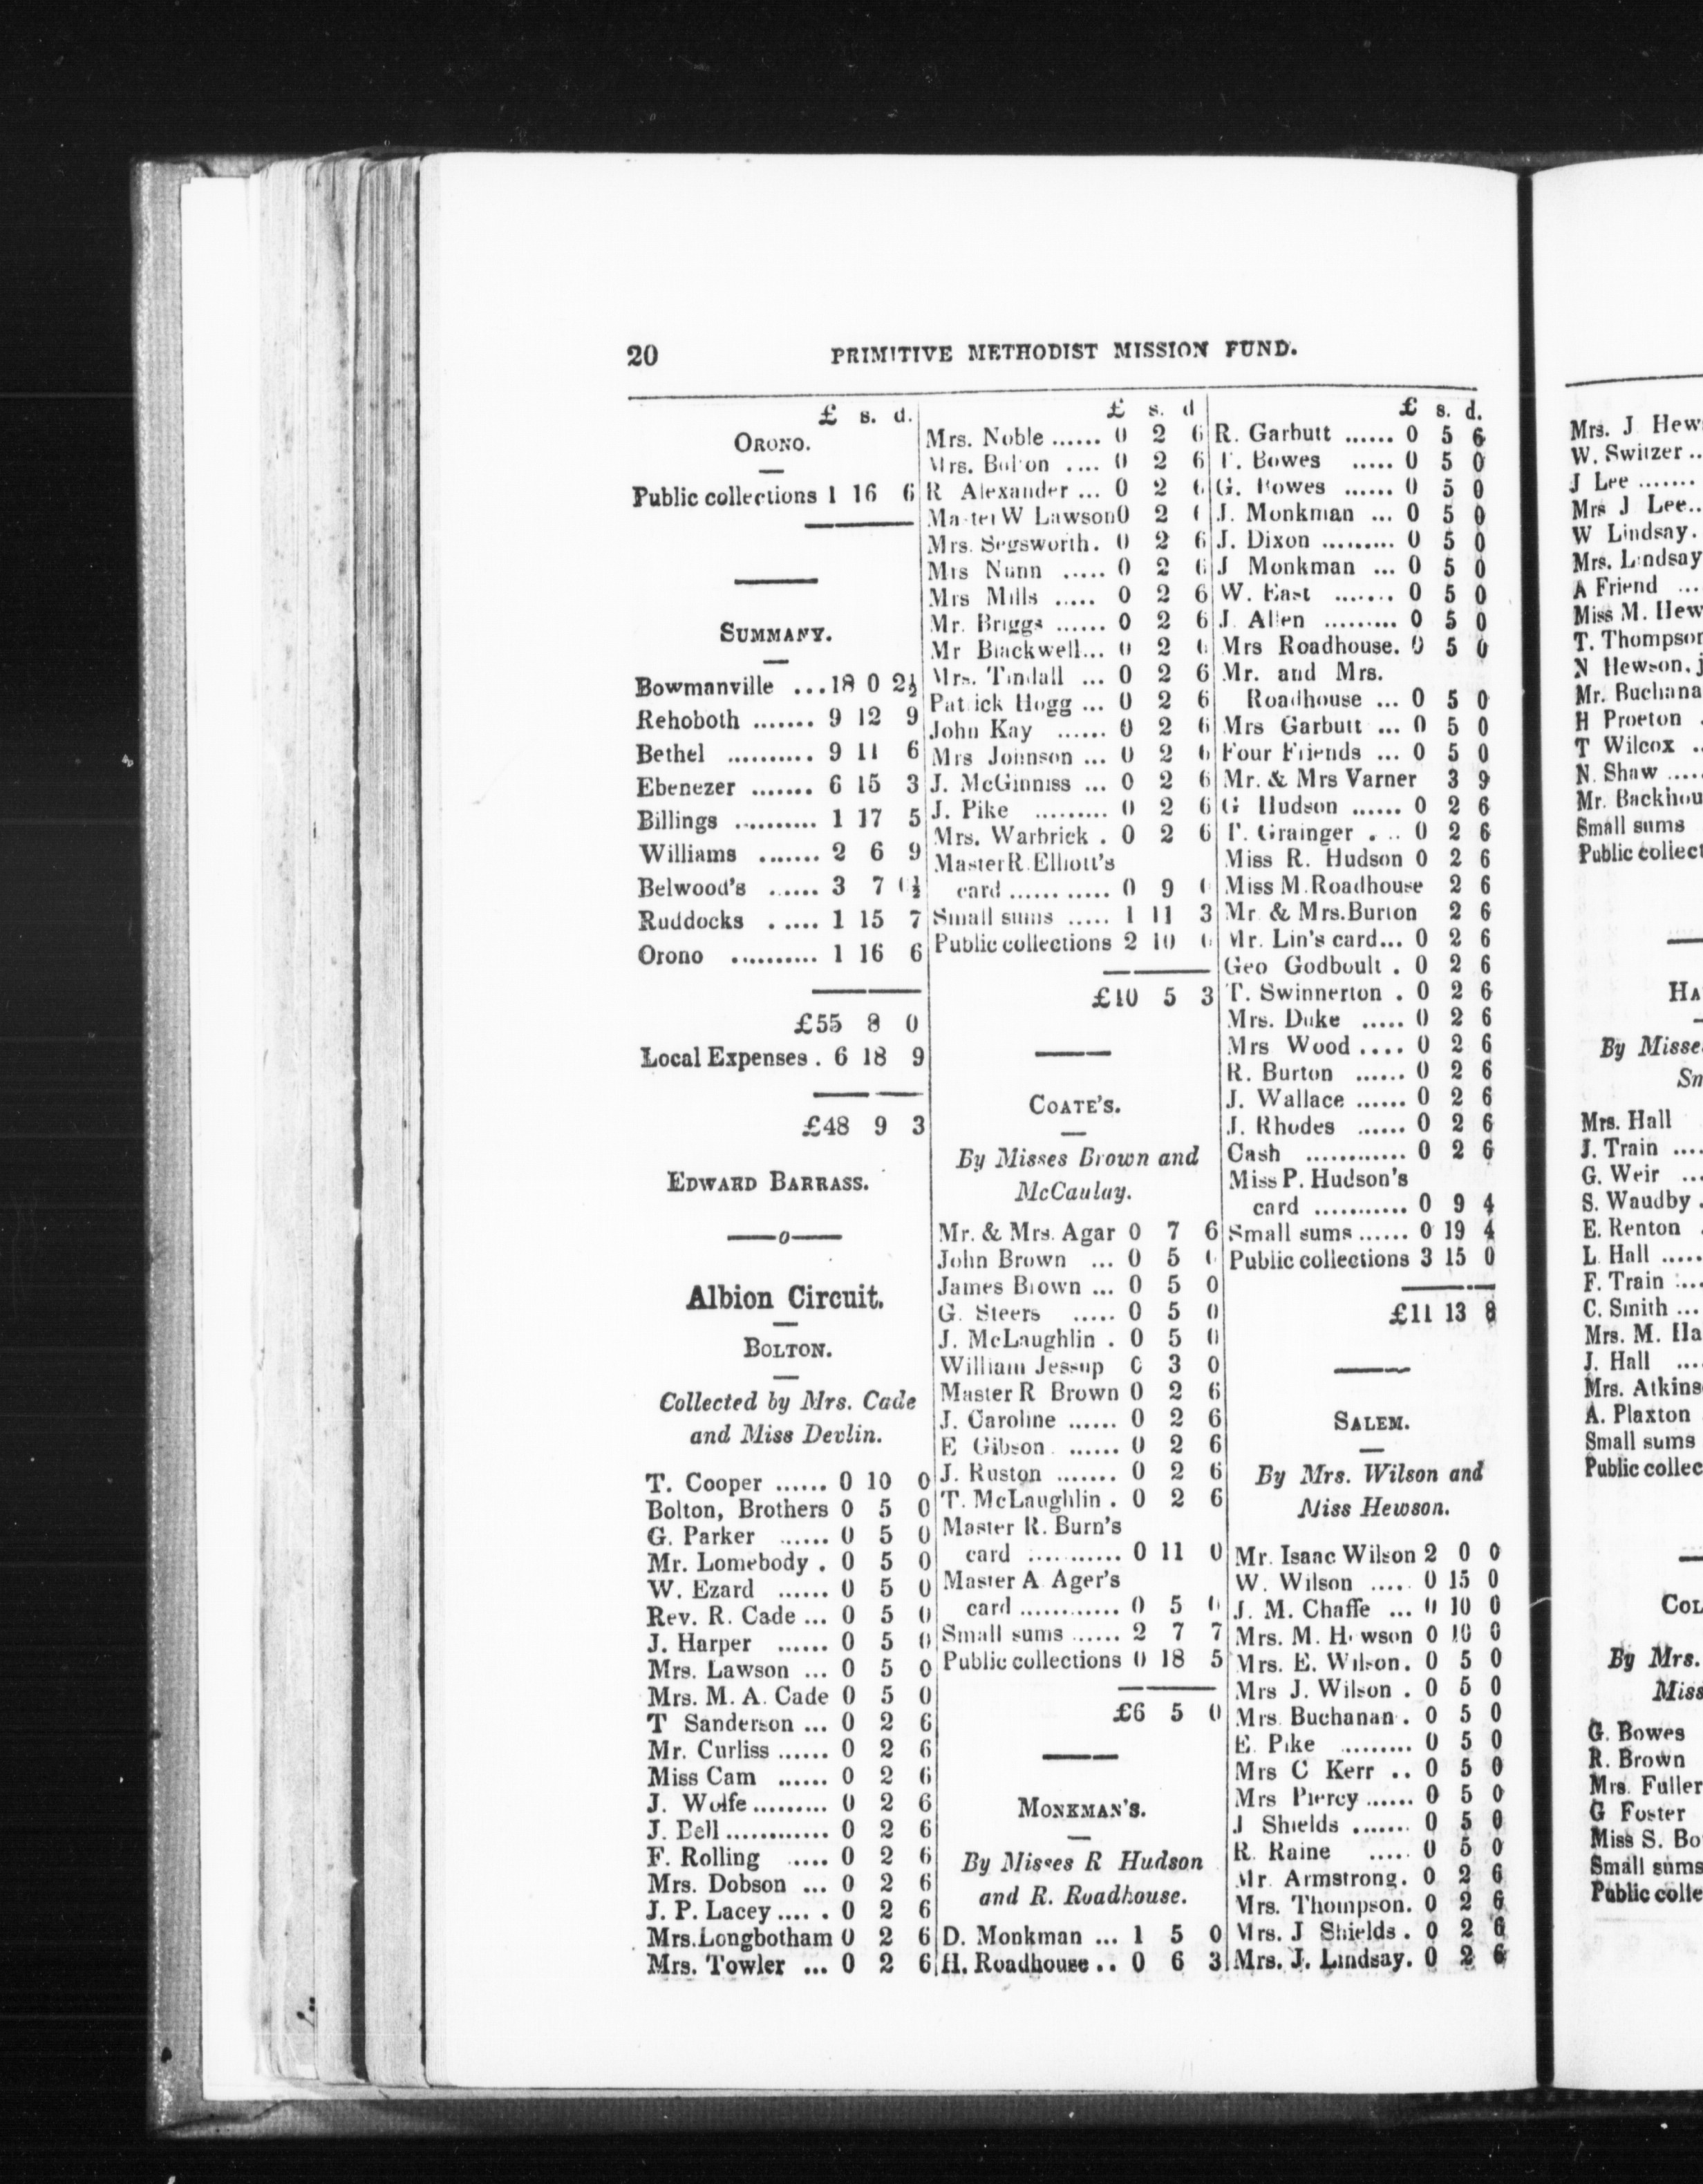 20 PRIMITIVE METHODIST MISSION FUND.
£ s. d.
ORONO.
Public collections 1 16 6
SUMMARY.
Bowmanville ...18 0 2½
Rehoboth ....... 9 12 9
Bethel .......... 9 11 6
Ebenezer ....... 6 15 3
Billings .......... 1 17 5
Williams ....... 2 6 9
Belwood's ...... 3 7 0½
Ruddocks ...... 1 15 7
Orono .......... 1 16 6
£55 8 0
Local Expenses . 6 18 9
£48 9 3
EDWARD BARRASS.
—o—
Albion Circuit.
BOLTON.
Collected by Mrs. Cade
and Miss Devlin.
T. Cooper ...... 0 10 0
Bolton, Brothers 0 5 0
G. Parker ...... 0 5 0
Mr. Lomebody . 0 5 0
W. Ezard ...... 0 5 0
Rev. R. Cade ... 0 5 0
J. Harper ...... 0 5 0
Mrs. Lawson ... 0 5 0
Mrs. M. A. Cade 0 5 0
T Sanderson ... 0 2 6
Mr. Curliss ...... 0 2 6
Miss Cam ...... 0 2 6
J. Wolfe ......... 0 2 6
J. Bell ............ 0 2 6
F. Rolling ..... 0 2 6
Mrs. Dobson ... 0 2 6
J. P. Lacey .... . 0 2 6
Mrs.Longbotham 0 2 6
Mrs. Towler ... 0 2 6
£ s. d
Mrs. Noble ...... 0 2 6
Mrs. Bolton .... 0 2 6
R Alexander ... 0 2 6
Master W Lawson 0 2 6
Mrs. Segsworth. 0 2 6
Mrs Nunn ..... 0 2 6
Mrs Mills ..... 0 2 6
Mr. Briggs ...... 0 2 6
Mr Blackwell... 0 2 6
Mrs. Tindall ... 0 2 6
Patrick Hogg ... 0 2 6
John Kay ...... 0 2 6
Mrs Johnson ... 0 2 6
J. McGinniss ... 0 2 6
J. Pike ......... 0 2 6
Mrs. Warbrick . 0 2 6
Master R. Elliott's
card ............ 0 9 0
Small sums ..... 1 11 3
Public collections 2 10 0
£10 5 3
COATE'S.
By Misses Brown and
McCaulay.
Mr. & Mrs. Agar 0 7 6
John Brown ... 0 5 0
James Brown ... 0 5 0
G. Steers ..... 0 5 0
J. McLaughlin . 0 5 0
William Jessup 0 3 0
Master R Brown 0 2 6
J. Caroline ...... 0 2 6
E Gibson ...... 0 2 6
J. Ruston ....... 0 2 6
T. McLaughlin . 0 2 6
Master R. Burn's
card ........... 0 11 0
Master A. Ager's
card ............ 0 5 0
Small sums ...... 2 7 7
Public collections 0 18 5
£6 5 0
MONKMAN'S.
By Misses R Hudson
and R. Roadhouse.
D. Monkman ... 1 5 0
H. Roadhouse .. 0 6 3
£ s. d.
R. Garbutt ...... 0 5 6
T. Bowes ..... 0 5 0
G. Bowes ...... 0 5 0
J. Monkman ... 0 5 0
J. Dixon ......... 0 5 0
J Monkman ... 0 5 0
W. East ....... 0 5 0
J. Allen ......... 0 5 0
Mrs Roadhouse. 0 5 0
Mr. and Mrs.
Roadhouse ... 0 5 0
Mrs Garbutt ... 0 5 0
Four Friends ... 0 5 0
Mr. & Mrs Varner 3 9
G Hudson ...... 0 2 6
T. Grainger . .. 0 2 6
Miss R. Hudson 0 2 6
Miss M.Roadhouse 2 6
Mr & Mrs.Burton 2 6
Mr. Lin's card... 0 2 6
Geo Godboult . 0 2 6
T. Swinnerton . 0 2 6
Mrs. Duke ..... 0 2 6
Mrs Wood .... 0 2 6
R. Burton ...... 0 2 6
J. Wallace ...... 0 2 6
J. Rhodes ...... 0 2 6
Cash ............ 0 2 6
Miss P. Hudson's
card ........... 0 9 4
Small sums ...... 0 19 4
Public collections 3 15 0
£11 13 8
SALEM.
By Mrs. Wilson and
Miss Hewson.
Mr. Isaac Wilson 2 0 0
W. Wilson ..... 0 15 0
J. M. Chaffe ... 0 10 0
Mrs. M. Hewson 0 10 0
Mrs. E. Wilson. 0 5 0
Mrs J. Wilson . 0 5 0
Mrs. Buchanan . 0 5 0
E. Pike ......... 0 5 0
Mrs C Kerr .. 0 5 0
Mrs Piercy ...... 0 5 0
J Shields ....... 0 5 0
R. Raine ..... 0 5 0
Mr. Armstrong. 0 2 6
Mrs. Thompson. 0 2 6
Mrs. J Shields . 0 2 6
Mrs. J. Lindsay. 0 2 6
Mrs. J Hew
W. Switzer ..
J Lee .......
Mrs J Lee..
W Lindsay.
Mrs. Lindsay
A Friend ...
Miss M. Hew
T. Thompson
N Hewson, j
Mr. Buchana
H Proeton .
T Wilcox ..
N. Shaw ....
Mr. Backhou
Small sums
Public collect
HA
By Misse
Sn
Mrs. Hall
J. Train ....
G. Weir ...
S. Waudby .
E. Renton .
L. Hall .....
F. Train ....
C. Smith ...
Mrs. M. Ha
J. Hall ....
Mrs. Atkins
A. Plaxton
Small sums
Public collec
COL
By Mrs.
Miss
G. Bowes
R. Brown
Mrs. Fuller
G Foster
Miss S. Bo
Small sums
Public colle